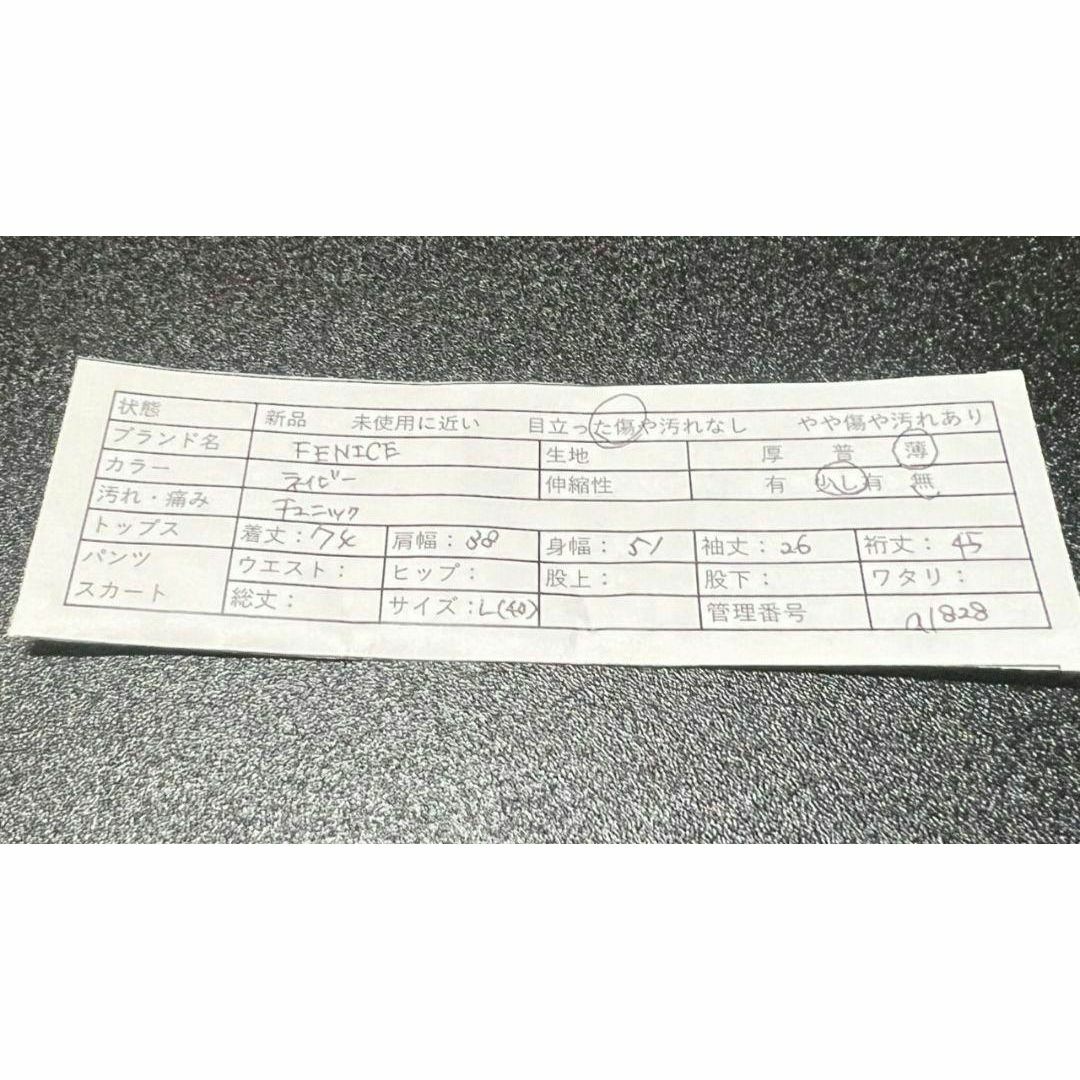 状態 新品 未使用に近い 目立った傷や汚れなし やや傷や汚れあり
ブランド名 FENICE 生地 厚 普 薄
カラー ネイビー 伸縮性 有 少し有 無
汚れ・痛み チュニック
トップス 着丈:74 肩幅:38 身幅:51 袖丈:26 裄丈:45
パンツ ウエスト: ヒップ: 股上: 股下: ワタリ:
スカート 総丈: サイズ:L(40) 管理番号 a1828